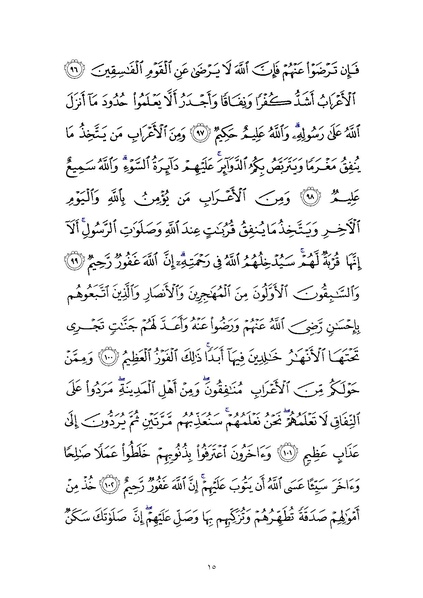 فَإِن تَرْضَوْا۟ عَنْهُمْ فَإِنَّ ٱللَّهَ لَا يَرْضَىٰ عَنِ ٱلْقَوْمِ ٱلْفَـٰسِقِينَ ٩٦
ٱلْأَعْرَابُ أَشَدُّ كُفْرًا وَنِفَاقًا وَأَجْدَرُ أَلَّا يَعْلَمُوا۟ حُدُودَ مَآ أَنزَلَ
ٱللَّهُ عَلَىٰ رَسُولِهِۦ ۗ وَٱللَّهُ عَلِيمٌ حَكِيمٌ ٩٧ وَمِنَ ٱلْأَعْرَابِ مَن يَتَّخِذُ مَا
يُنفِقُ مَغْرَمًا وَيَتَرَبَّصُ بِكُمُ ٱلدَّوَآئِرَ ۚ عَلَيْهِمْ دَآئِرَةُ ٱلسَّوْءِ ۗ وَٱللَّهُ سَمِيعٌ
عَلِيمٌ ٩٨ وَمِنَ ٱلْأَعْرَابِ مَن يُؤْمِنُ بِٱللَّهِ وَٱلْيَوْمِ
ٱلْـَٔاخِرِ وَيَتَّخِذُ مَا يُنفِقُ قُرُبَـٰتٍ عِندَ ٱللَّهِ وَصَلَوَٰتِ ٱلرَّسُولِ ۚ أَلَآ
إِنَّهَا قُرْبَةٌ لَّهُمْ ۚ سَيُدْخِلُهُمُ ٱللَّهُ فِى رَحْمَتِهِۦٓ ۗ إِنَّ ٱللَّهَ غَفُورٌ رَّحِيمٌ ٩٩
وَٱلسَّـٰبِقُونَ ٱلْأَوَّلُونَ مِنَ ٱلْمُهَـٰجِرِينَ وَٱلْأَنصَارِ وَٱلَّذِينَ ٱتَّبَعُوهُم
بِإِحْسَـٰنٍ رَّضِىَ ٱللَّهُ عَنْهُمْ وَرَضُوا۟ عَنْهُ وَأَعَدَّ لَهُمْ جَنَّـٰتٍ تَجْرِى
تَحْتَهَا ٱلْأَنْهَـٰرُ خَـٰلِدِينَ فِيهَآ أَبَدًا ۚ ذَٰلِكَ ٱلْفَوْزُ ٱلْعَظِيمُ ١٠٠ وَمِمَّنْ
حَوْلَكُم مِّنَ ٱلْأَعْرَابِ مُنَـٰفِقُونَ ۖ وَمِنْ أَهْلِ ٱلْمَدِينَةِ ۖ مَرَدُوا۟ عَلَى
ٱلنِّفَاقِ لَا تَعْلَمُهُمْ ۖ نَحْنُ نَعْلَمُهُمْ ۚ سَنُعَذِّبُهُم مَّرَّتَيْنِ ثُمَّ يُرَدُّونَ إِلَىٰ
عَذَابٍ عَظِيمٍ ١٠١ وَءَاخَرُونَ ٱعْتَرَفُوا۟ بِذُنُوبِهِمْ خَلَطُوا۟ عَمَلًا صَـٰلِحًا
وَءَاخَرَ سَيِّئًا عَسَى ٱللَّهُ أَن يَتُوبَ عَلَيْهِمْ ۚ إِنَّ ٱللَّهَ غَفُورٌ رَّحِيمٌ ١٠٢ خُذْ مِنْ
أَمْوَٰلِهِمْ صَدَقَةً تُطَهِّرُهُمْ وَتُزَكِّيهِم بِهَا وَصَلِّ عَلَيْهِمْ ۖ إِنَّ صَلَوٰتَكَ سَكَنٌ
١٥